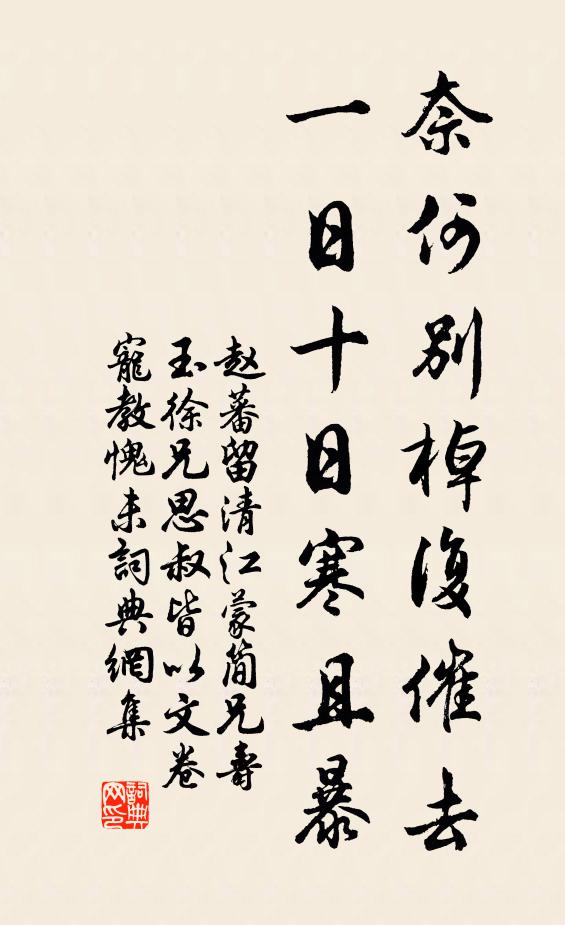 奈何別棹復催去
一日十日寒且暴
赵蕃留清江蒙简兄壽
玉徐兄思叔皆以文卷
寵教愧未詞典網集
詞典网印